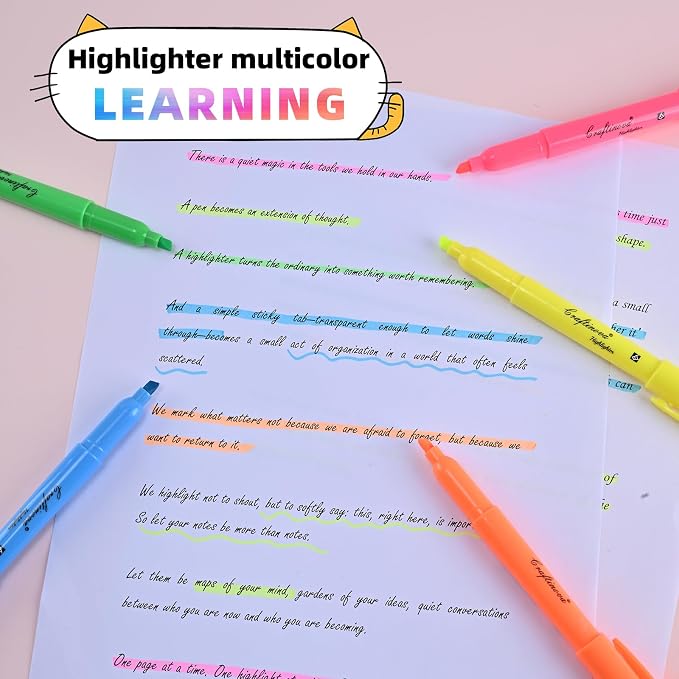 Highlighter multicolor
LEARNING
There is a quiet magic in the tools we hold in our hands.
A pen becomes an extension of thought.
A highlighter turns the ordinary into something worth remembering.
And a simple sticky tab—transparent enough to let words shine
through—becomes a small act of organization in a world that often feels
scattered.
We mark what matters not because we are afraid to forget, but because we
want to return to it.
We highlight not to shout, but to softly say: this, right here, is impor
So let your notes be more than notes.
Let them be maps of your mind, gardens of your ideas, quiet conversations
between who you are now and who you are becoming.
One page at a time. One highlight
time just
shape.
a small
can
of
Craftinova®
Highlighter
Craftinova®
Highlighter
Craftinova®
Craftinova®
Craftinova®